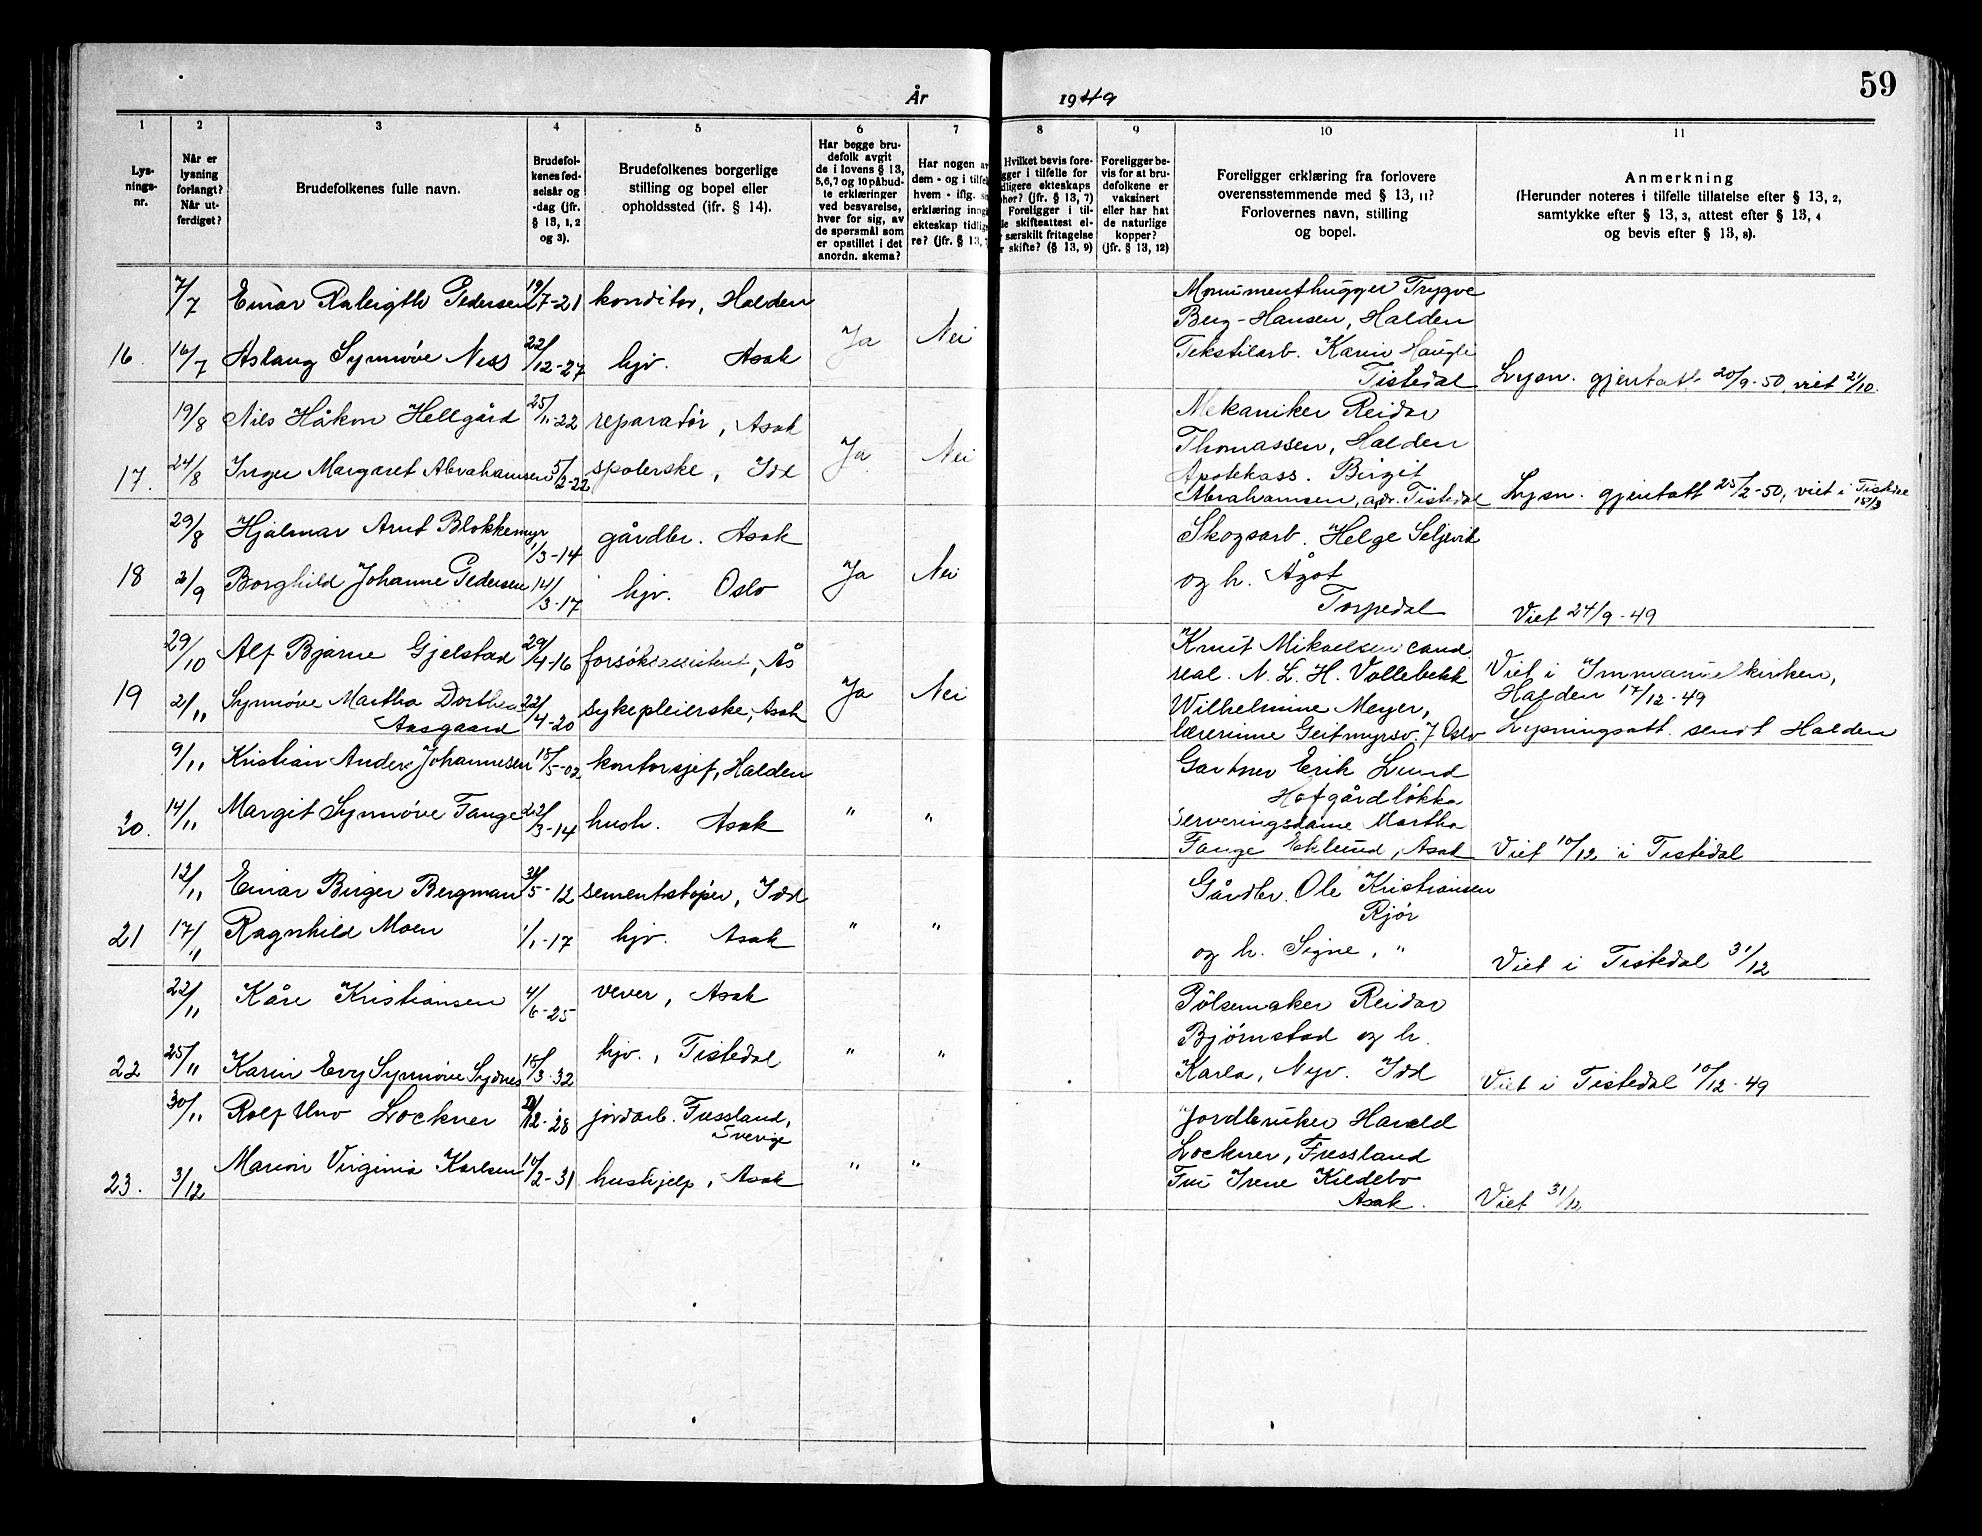 59
År 1949
1 2 3 4 5 6 7 8 9 10 11
Lys-
nings-
nr.
Når er
lysning
forlangt?
Når ut-
ferdiget?
Brudefolkenes fulle navn.
Brudefol-
kenes fød-
selsår og
-dag (jfr.
§ 13, 1, 2
og 3).
Brudefolkenes borgerlige
stilling og bopel eller
opholdssted (ifr. § 14).
Har begge bru-
defolk avgit
de i lovens § 13,
5,6,7 og 10 påbud-
te erklæringer
ved besvarelse,
hver for sig, av
de spørsmål som
er opstillet i det
anordn. skema?
Har nogen av
dem - og i tilfel
hvem - iflg. s
erklæring inngå
ekteskap tidlig
re? (jfr. § 13, 7
Hvilket bevis fore-
gger i tilfelle for
dligere ekteskaps
phør? (jfr. § 13, 7)
Foreligger i til-
le skifteattest el-
særskilt fritagelse
r skifte? (§ 13, 9)
Foreligger be-
vis for at bru-
defolkene er
vaksinert
eller har hat
de naturlige
kopper?
(jfr. § 13, 12)
Foreligger erklæring fra forlovere
overensstemmende med § 13, 11?
Forlovernes navn, stilling
og bopel.
Anmerkning
(Herunder noteres i tilfelle tillatelse efter § 13, 2,
samtykke efter § 13, 3, attest efter § 13, 4
og bevis efter § 13, 8).
7/7 Einar Raleigth Pedersen 19/7-21 konditor, Halden
16. 16/7 Aslaug Synnøve Ness 22/12-27 hjv. Asak Ja Nei
Monumenthugger Trygve
Berg-Hansen, Halden
Tekstilarb. Karin Haugli
Tistedal
Lysn. gjentatt 20/9-50, viet 21/10.
19/8 Nils Håkon Hellgård 25/11-22 reparatør, Asak
17. 24/8 Inger Margaret Abrahamsen 5/2-22 spolerske, Idd Ja Nei
Mekaniker Reidar
Thomassen, Halden
Apotekass. Birgit
Abrahamsen, adr. Tistedal
Lysn. gjentatt 25/2-50, viet i Tistedal
18/3
29/8 Hjalmar Arnt Blokkemyr 1/3-14 gårdbr. Asak
18 2/9 Borghild Johanne Pedersen 14/3-17 hjv. Oslo Ja Nei
Skogsarb. Helge Seljevik
og h. Ågot
Torpedal
Viet 24/9-49
29/10 Alf Bjarne Gjelstad 29/4-16 forsøksassistent, Ås
19 2/11 Synnøve Martha Dorthea 22/4-20 sykepleierske, Asak Ja Nei
Aasgaard
Knut Mikaelsen cand.
real. N. L. H. Vollebekk
Wilhelmine Meyer,
lærerinne Geitmyrsv. 7 Oslo
Viet i Immanuelkirken,
Halden 17/12-49
Lysningsatt. sendt Halden
9/11 Kristian Anders Johannesen 18/5-02 kontorsjef, Halden
20. 14/11 Margit Synnøve Fange 22/3-14 hush. Asak " "
Gartner Erik Lund
Hofgårdløkka
Serveringsdame Martha
Fange Eklund, Asak
Viet 10/12 i Tistedal
12/11 Einar Birger Bergman 31/5-12 sementstøper, Idd
21 17/11 Ragnhild Moen 1/1-17 hjv. Asak " "
Gårdbr. Ole Kristiansen
Rjør
og h. Signe, "
Viet i Tistedal 31/12
22/11 Kåre Kristiansen 4/6-25 vever, Asak
22 25/11 Karin Evy Synnøve Sydnes 15/3-32 hjv., Tistedal " "
Pølsemaker Reidar
Bjørnstad og h.
Karla, Nyv. Idd
Viet i Tistedal 10/12-49
30/11 Rolf Uno Lockner /12-28 jordarb. Fressland,
Sverige
23. 3/12 Marion Virginia Karlsen 10/2-31 hushjelp, Asak " "
Jordbruker Harald
Lockner, Fressland
Fru Irene Kildebo
Asak.
Viet 31/12